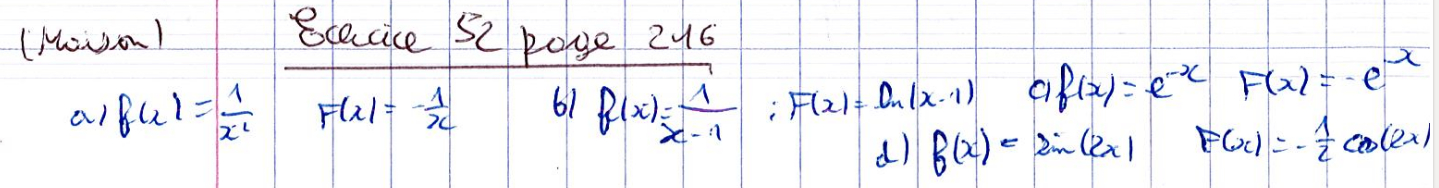 (Maison) Exercice 52 page 246
a) f(x) = 1/x² F(x) = -1/x b) f(x) = 1/(x-1) ; F(x) = ln(x-1) c) f(x) = e^-x F(x) = -e^-x
d) f(x) = sin(2x) F(x) = -1/2 cos(2x)